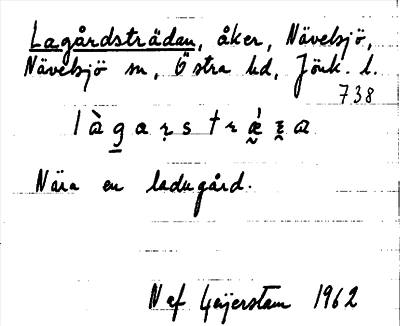 Lagårdsträdan, åker, Nävelsjö,
Nävelsjö sn, Östra hd, Jönk. l.
738
Nära en ladugård.
N af Geijerstam 1962